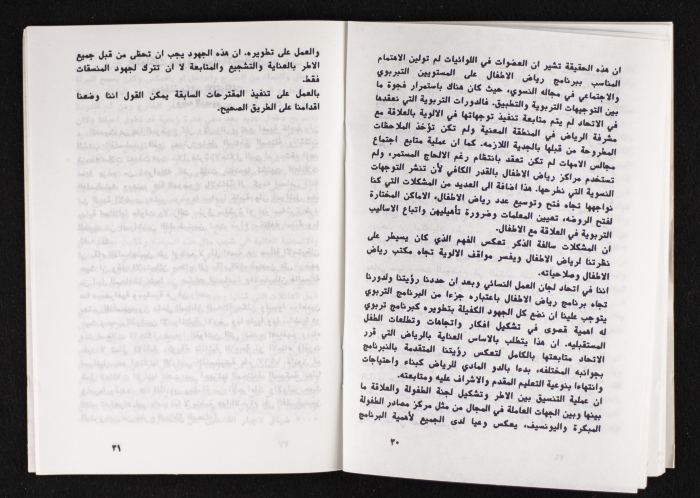 ان هذه الحقيقة تشير ان العضوات في اللوائيات لم تولين الاهتمام
المناسب ببرنامج رياض الاطفال على المستويين التربوي
والاجتماعي في مجاله النسوي، حيث كان هناك باستمرار فجوة ما
بين التوجيهات التربوية والتطبيق. فالدورات التربوية التي نعقدها
في الاتحاد لم يتم متابعة تنفيذ توجهاتها في الالوية بالعلاقة مع
مشرفة الرياض في المنطقة المعنية ولم تكن تؤخذ الملاحظات
المطروحة من قبلها بالجدية اللازمه. كما ان عملية متابع اجتماع
مجالس الامهات لم تكن تعقد بانتظام رغم الالحاح المستمر، ولم
تستخدم مراكز رياض الاطفال بالقدر الكافي لأن تنشر التوجهات
النسوية التي نطرحها. هذا اضافة الى العديد من المشكلات التي كنا
نواجهها تجاه فتح وتوسيع عدد رياض الاطفال، الاماكن المختارة
لفتح الروضه، تعيين المعلمات وضرورة تأهيليهن واتباع الاساليب
التربوية في العلاقة مع الاطفال.
ان المشكلات سالفة الذكر تعكس الفهم الذي كان يسيطر على
نظرتنا لرياض الاطفال ويفسر مواقف الالوية تجاه مكتب رياض
الاطفال وصلاحياته.
اننا في اتحاد لجان العمل النسائي وبعد ان حددنا رؤيتنا ولدورنا
تجاه برنامج رياض الاطفال باعتباره جزءا من البرنامج التربوي
يتوجب علينا ان نضع كل الجهود الكفيلة بتطويره كبرنامج تربوي
له اهمية قصوى في تشكيل افكار واتجاهات وتطلعات الطفل
المستقبليه. ان هذا يتطلب بالاساس العناية بالرياض التي قرر
الاتحاد متابعتها بالكامل لتعكس رؤيتنا المتقدمة بالبرنامج
بجوانبه المختلفه، بدءا بالدو المادي للرياض كبناء واحتياجات
وانتهاءا بنوعية التعليم المقدم والاشراف عليه ومتابعته.
ان عملية التنسيق بين الاطر وتشكيل لجنة الطفولة والعلاقة ما
بينها وبين الجهات العاملة في المجال من مثل مركز مصادر الطفولة
المبكرة واليونسيف، يعكس وعيا لدى الجميع لأهمية البرنامج
٣٠
والعمل على تطويره. ان هذه الجهود يجب ان تحظى من قبل جميع
الاطر بالعناية والتشجيع والمتابعة لا ان تترك لجهود المنسقات
فقط.
بالعمل على تنفيذ المقترحات السابقة يمكن القول اننا وضعنا
اقدامنا على الطريق الصحيح.
٣١